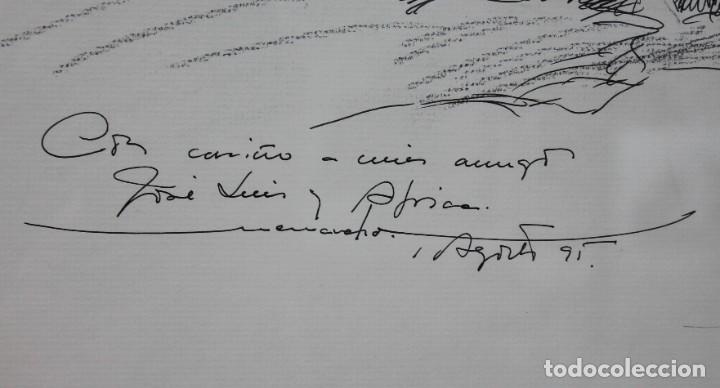 Con cariño a mis amigos
José Luis y Africa.
1 Agosto 95.
todocoleccion.net